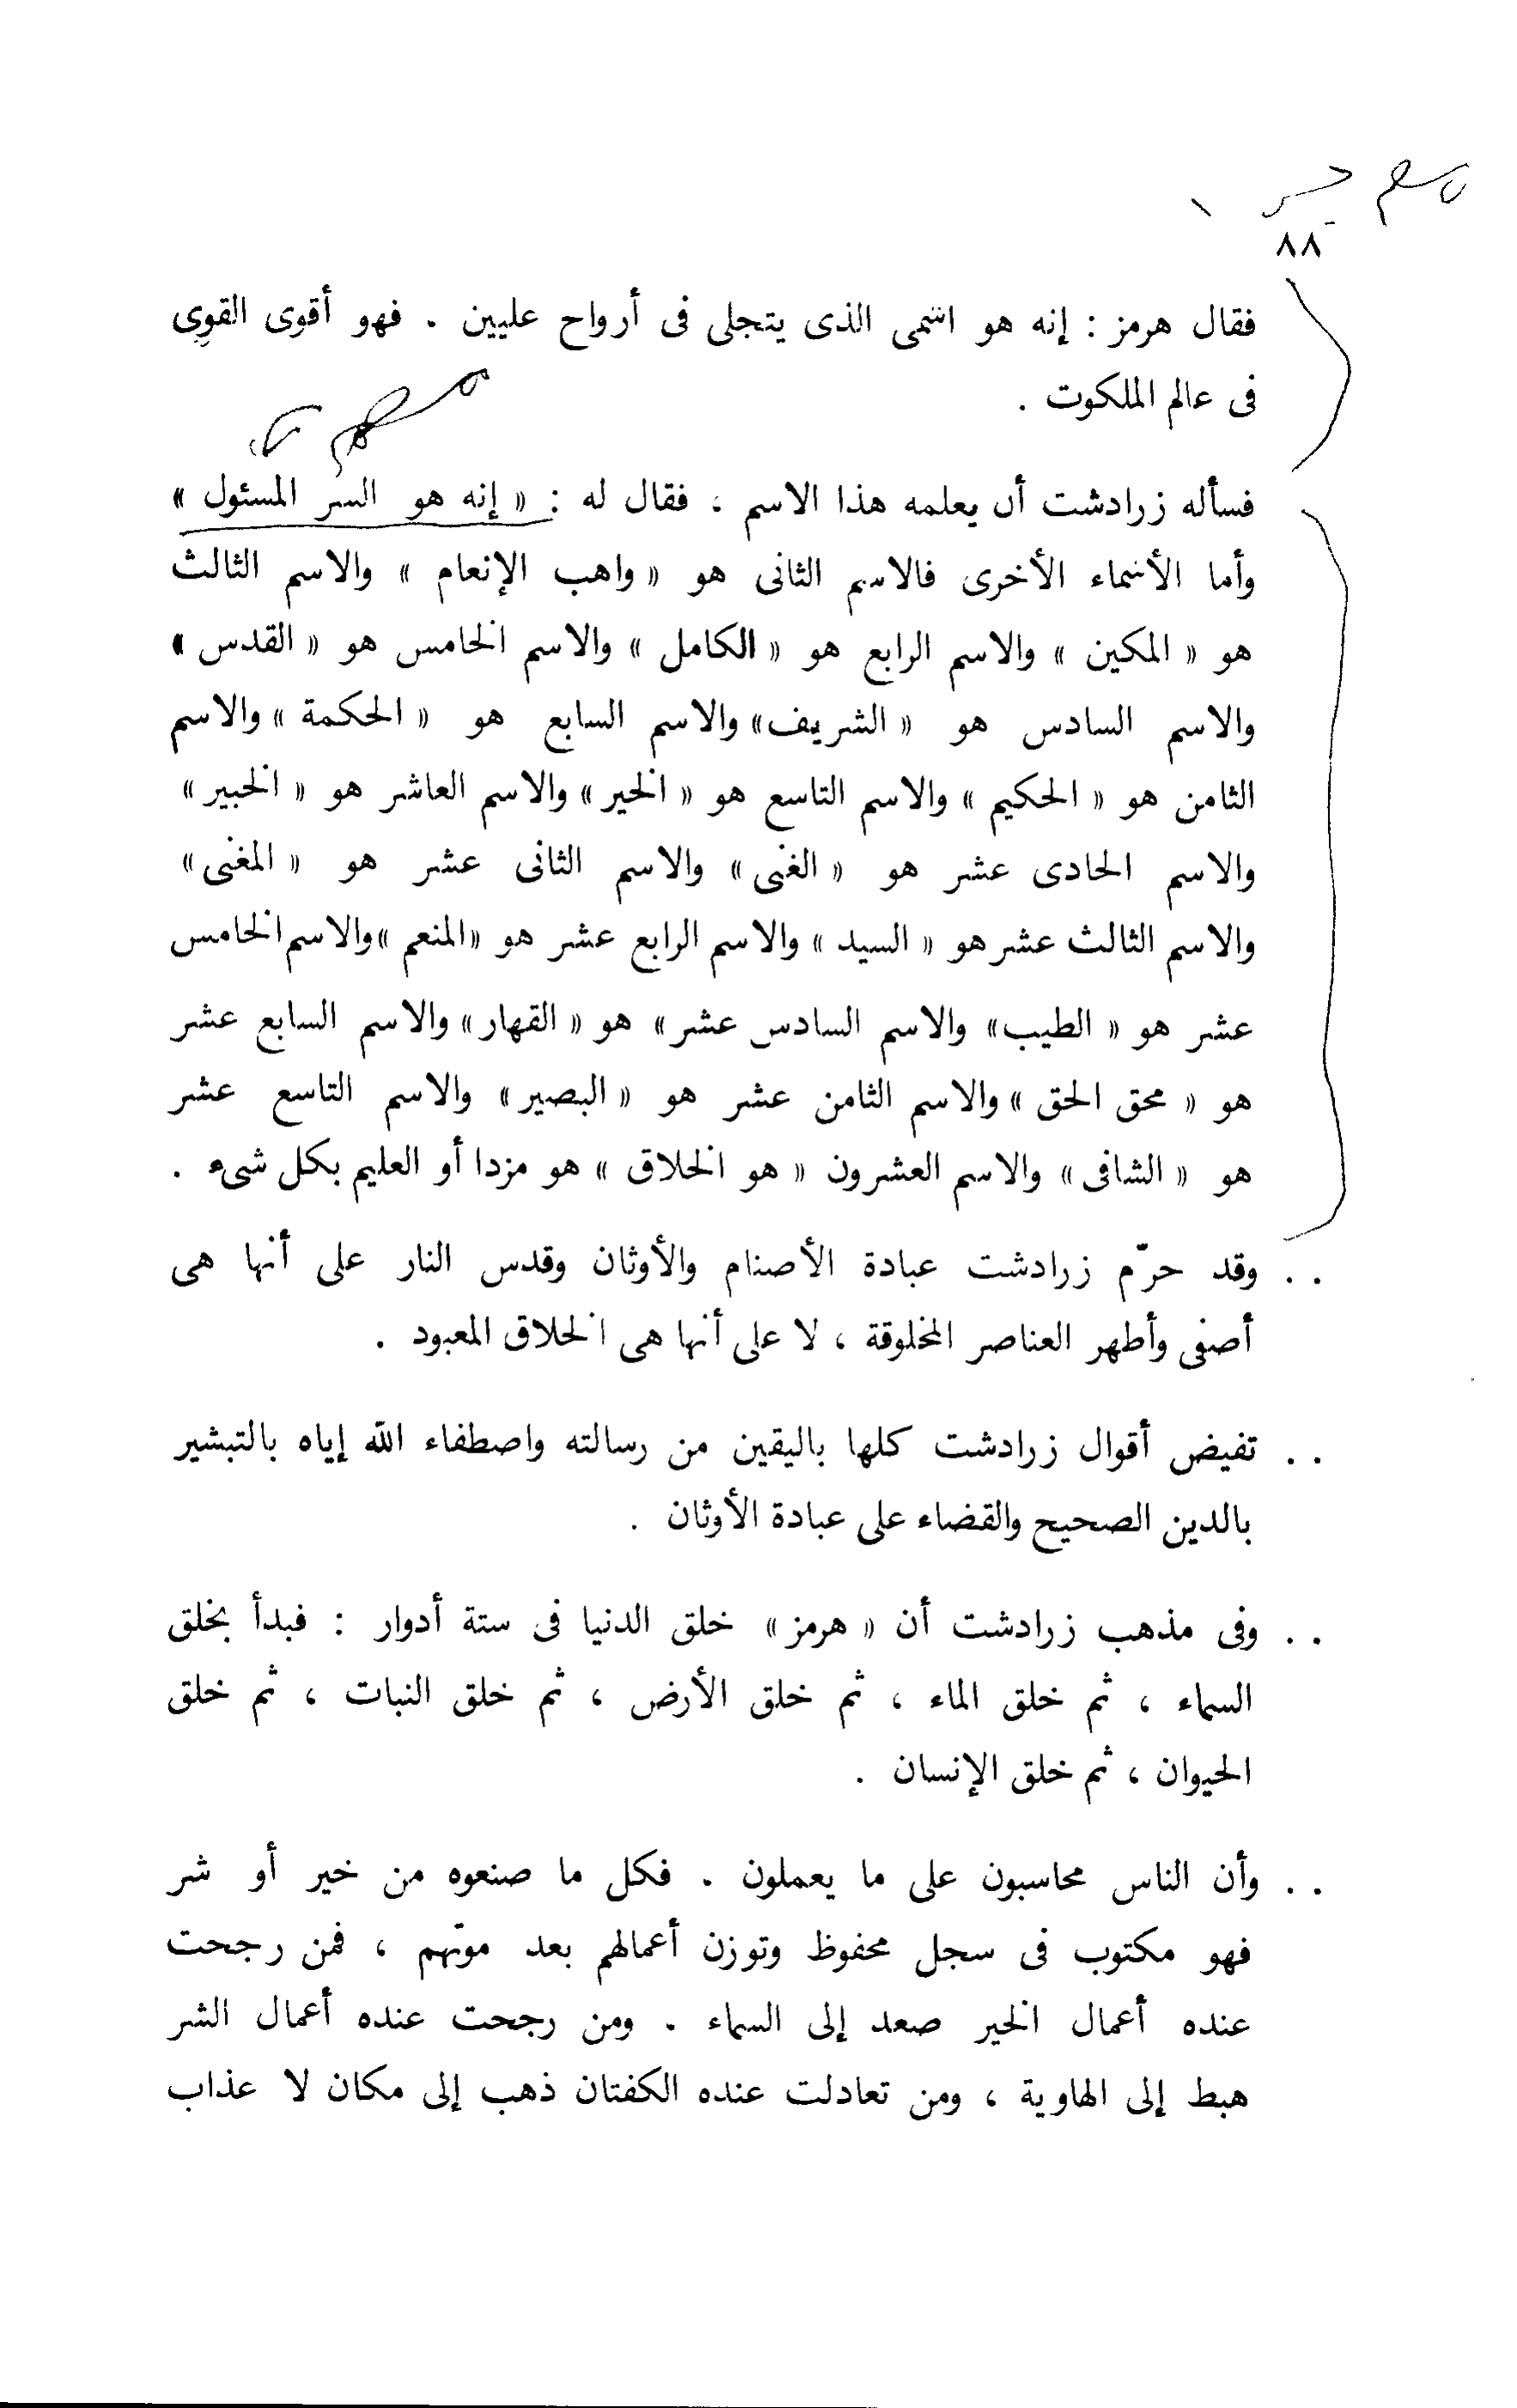 ٨٨
فقال هرمز : إنه هو اسمى الذى يتجلى فى أرواح عليين . فهو أقوى القوى
فى عالم الملكوت .
فسأله زرادشت أن يعلمه هذا الاسم ، فقال له : « إنه هو السر المسئول »
وأما الأسماء الأخرى فالاسم الثانى هو « واهب الإنعام » والاسم الثالث
هو « المكين » والاسم الرابع هو « الكامل » والاسم الخامس هو « القدس »
والاسم السادس هو « الشريف» والاسم السابع هو « الحكمة » والاسم
الثامن هو « الحكيم » والاسم التاسع هو « الخير » والاسم العاشر هو « الخبير »
والاسم الحادى عشر هو « الغنى » والاسم الثانى عشر هو « المغنى »
والاسم الثالث عشر هو « السيد » والاسم الرابع عشر هو «المنعم » والاسم الخامس
عشر هو « الطيب» والاسم السادس عشر» هو « القهار» والاسم السابع عشر
هو « محق الحق » والاسم الثامن عشر هو « البصير» والاسم التاسع عشر
هو « الشافى » والاسم العشرون « هو الخلاق » هو مزدا أو العليم بكل شىء .
. . وقد حرّم زرادشت عبادة الأصنام والأوثان وقدس النار على أنها هى
أصفى وأطهر العناصر المخلوقة ، لا على أنها هى الخلاق المعبود .
. . تفيض أقوال زرادشت كلها باليقين من رسالته واصطفاء الله إياه بالتبشير
بالدين الصحيح والقضاء على عبادة الأوثان .
. . وفى مذهب زرادشت أن « هرمز » خلق الدنيا فى ستة أدوار : فبدأ بخلق
السماء ، ثم خلق الماء ، ثم خلق الأرض ، ثم خلق النبات ، ثم خلق
الحيوان ، ثم خلق الإنسان .
. . وأن الناس محاسبون على ما يعملون . فكل ما صنعوه من خير أو شر
فهو مكتوب فى سجل محفوظ وتوزن أعمالهم بعد موتهم ، فمن رجحت
عنده أعمال الخير صعد إلى السماء . ومن رجحت عنده أعمال الشر
هبط إلى الهاوية ، ومن تعادلت عنده الكفتان ذهب إلى مكان لا عذاب